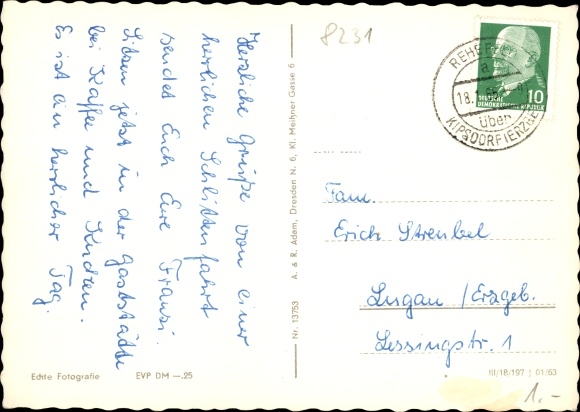 Herzliche Grüße von einer
herrlichen Schlittenfahrt
sendet Euch Eure Franzi.
Sitzen jetzt in der Gaststätte
bei Kaffee und Kuchen.
Es ist ein herrlicher Tag.
Echte Fotografie EVP DM —.25
Nr. 13753 A. & R. Adam, Dresden N. 6, Kl. Meißner Gasse 6
8231
DEUTSCHE
DEMOKRATISCHE REPUBLIK
10
a
18.1.
über
KIPSDORF(ERZGEB
Fam.
Erich Streubel
Lugau /Erzgeb.
Lessingstr. 1
III/18/197 01/63
1.-